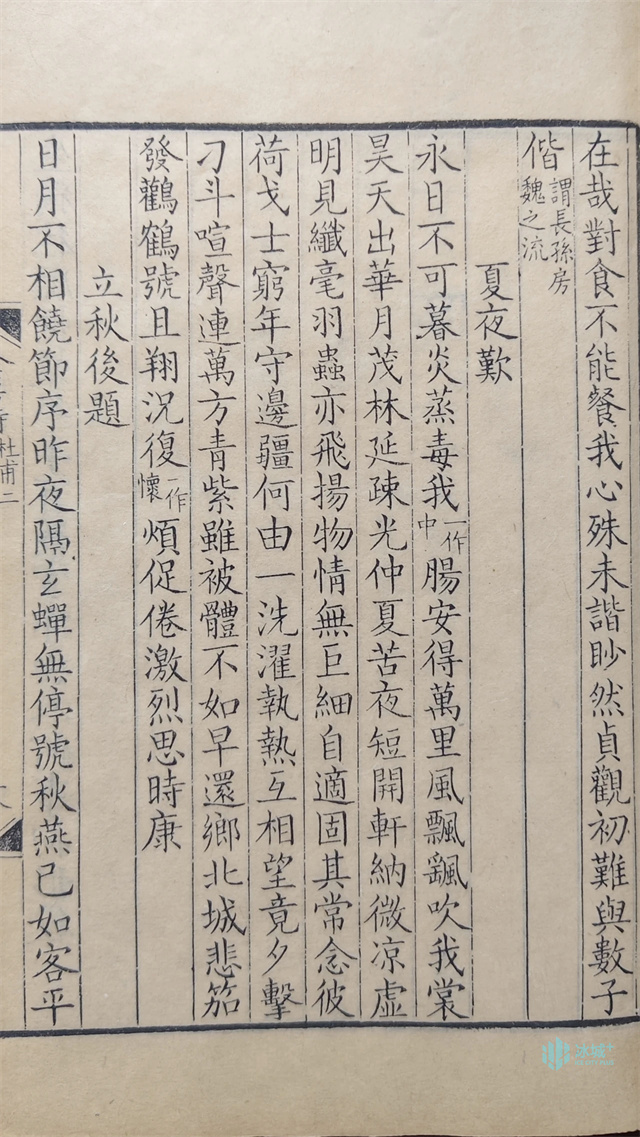 在哉對食不能餐我心殊未諧眇然貞觀初難與數子
偕謂長孫房魏之流
夏夜歎
永日不可暮炎蒸毒我一作中腸安得萬里風飄颻吹我裳
昊天出華月茂林延疎光仲夏苦夜短開軒納微凉虛
明見纖毫羽蟲亦飛揚物情無巨細自適固其常念彼
荷戈士窮年守邊疆何由一洗濯執熱互相望竟夕擊
刁斗喧聲連萬方青紫雖被體不如早還鄉北城悲笳
發鸛鶴號且翔況復一作懷煩促倦激烈思時康
立秋後題
日月不相饒節序昨夜隔玄蟬無停號秋燕已如客平
杜甫二
冰城+